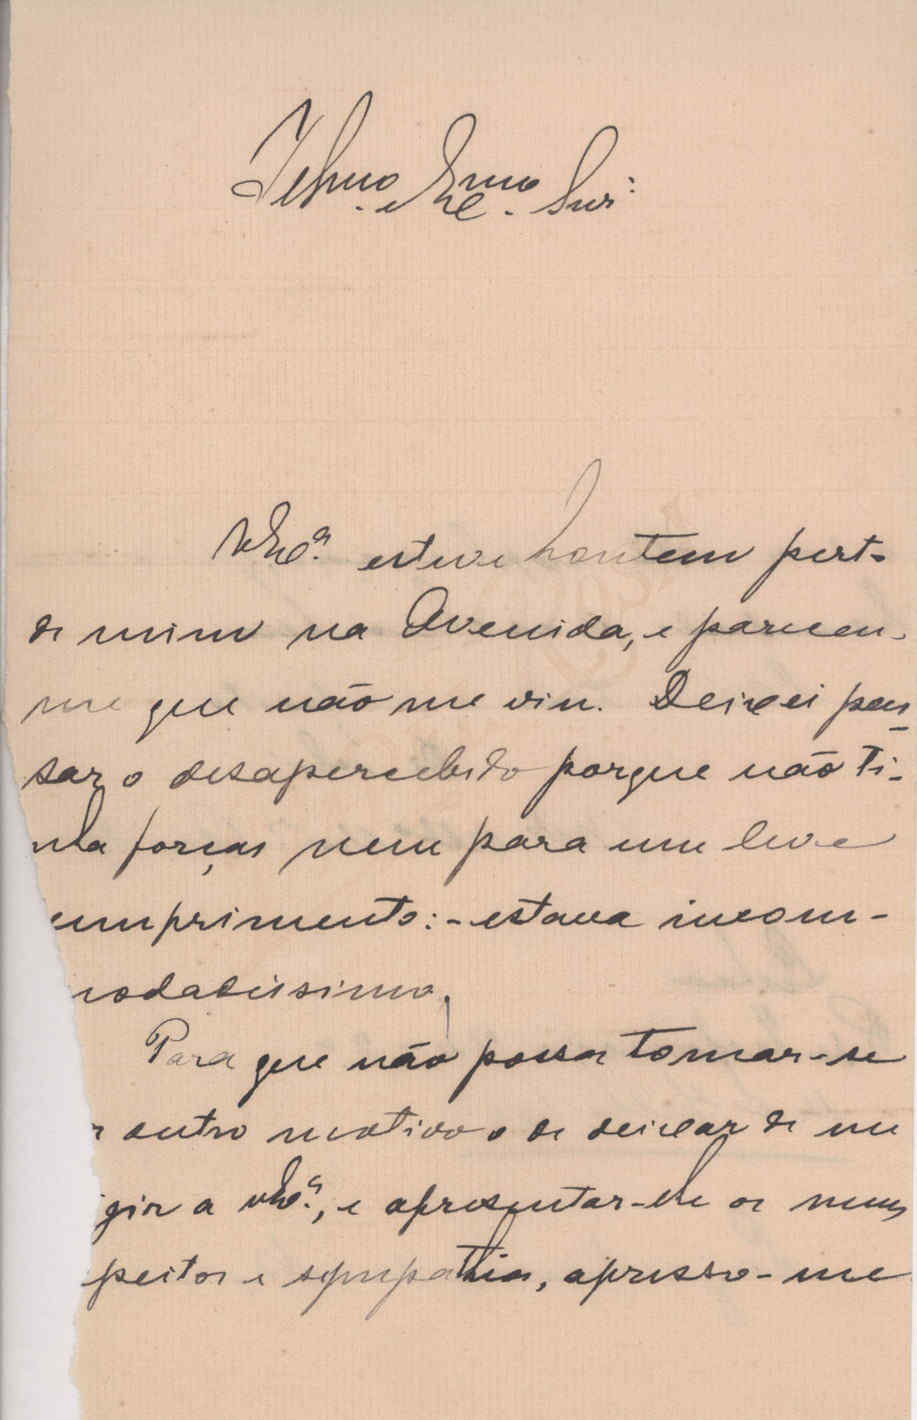 Illmo e Exmo. Snr:
V Exª. esteve hontem perto
de mim na Avenida, e pareceu-
me que não me viu. Deixei pas-
sar o desapercebido porque não ti-
nha forças nem para um leve
cumprimento: - estava incom-
modadissimo.
Para que não possa tomar-se
r outro motivo o de deixar de me
gir a V Exª., e apresentar-lhe os meus
peitos e sympathia, apresso-me